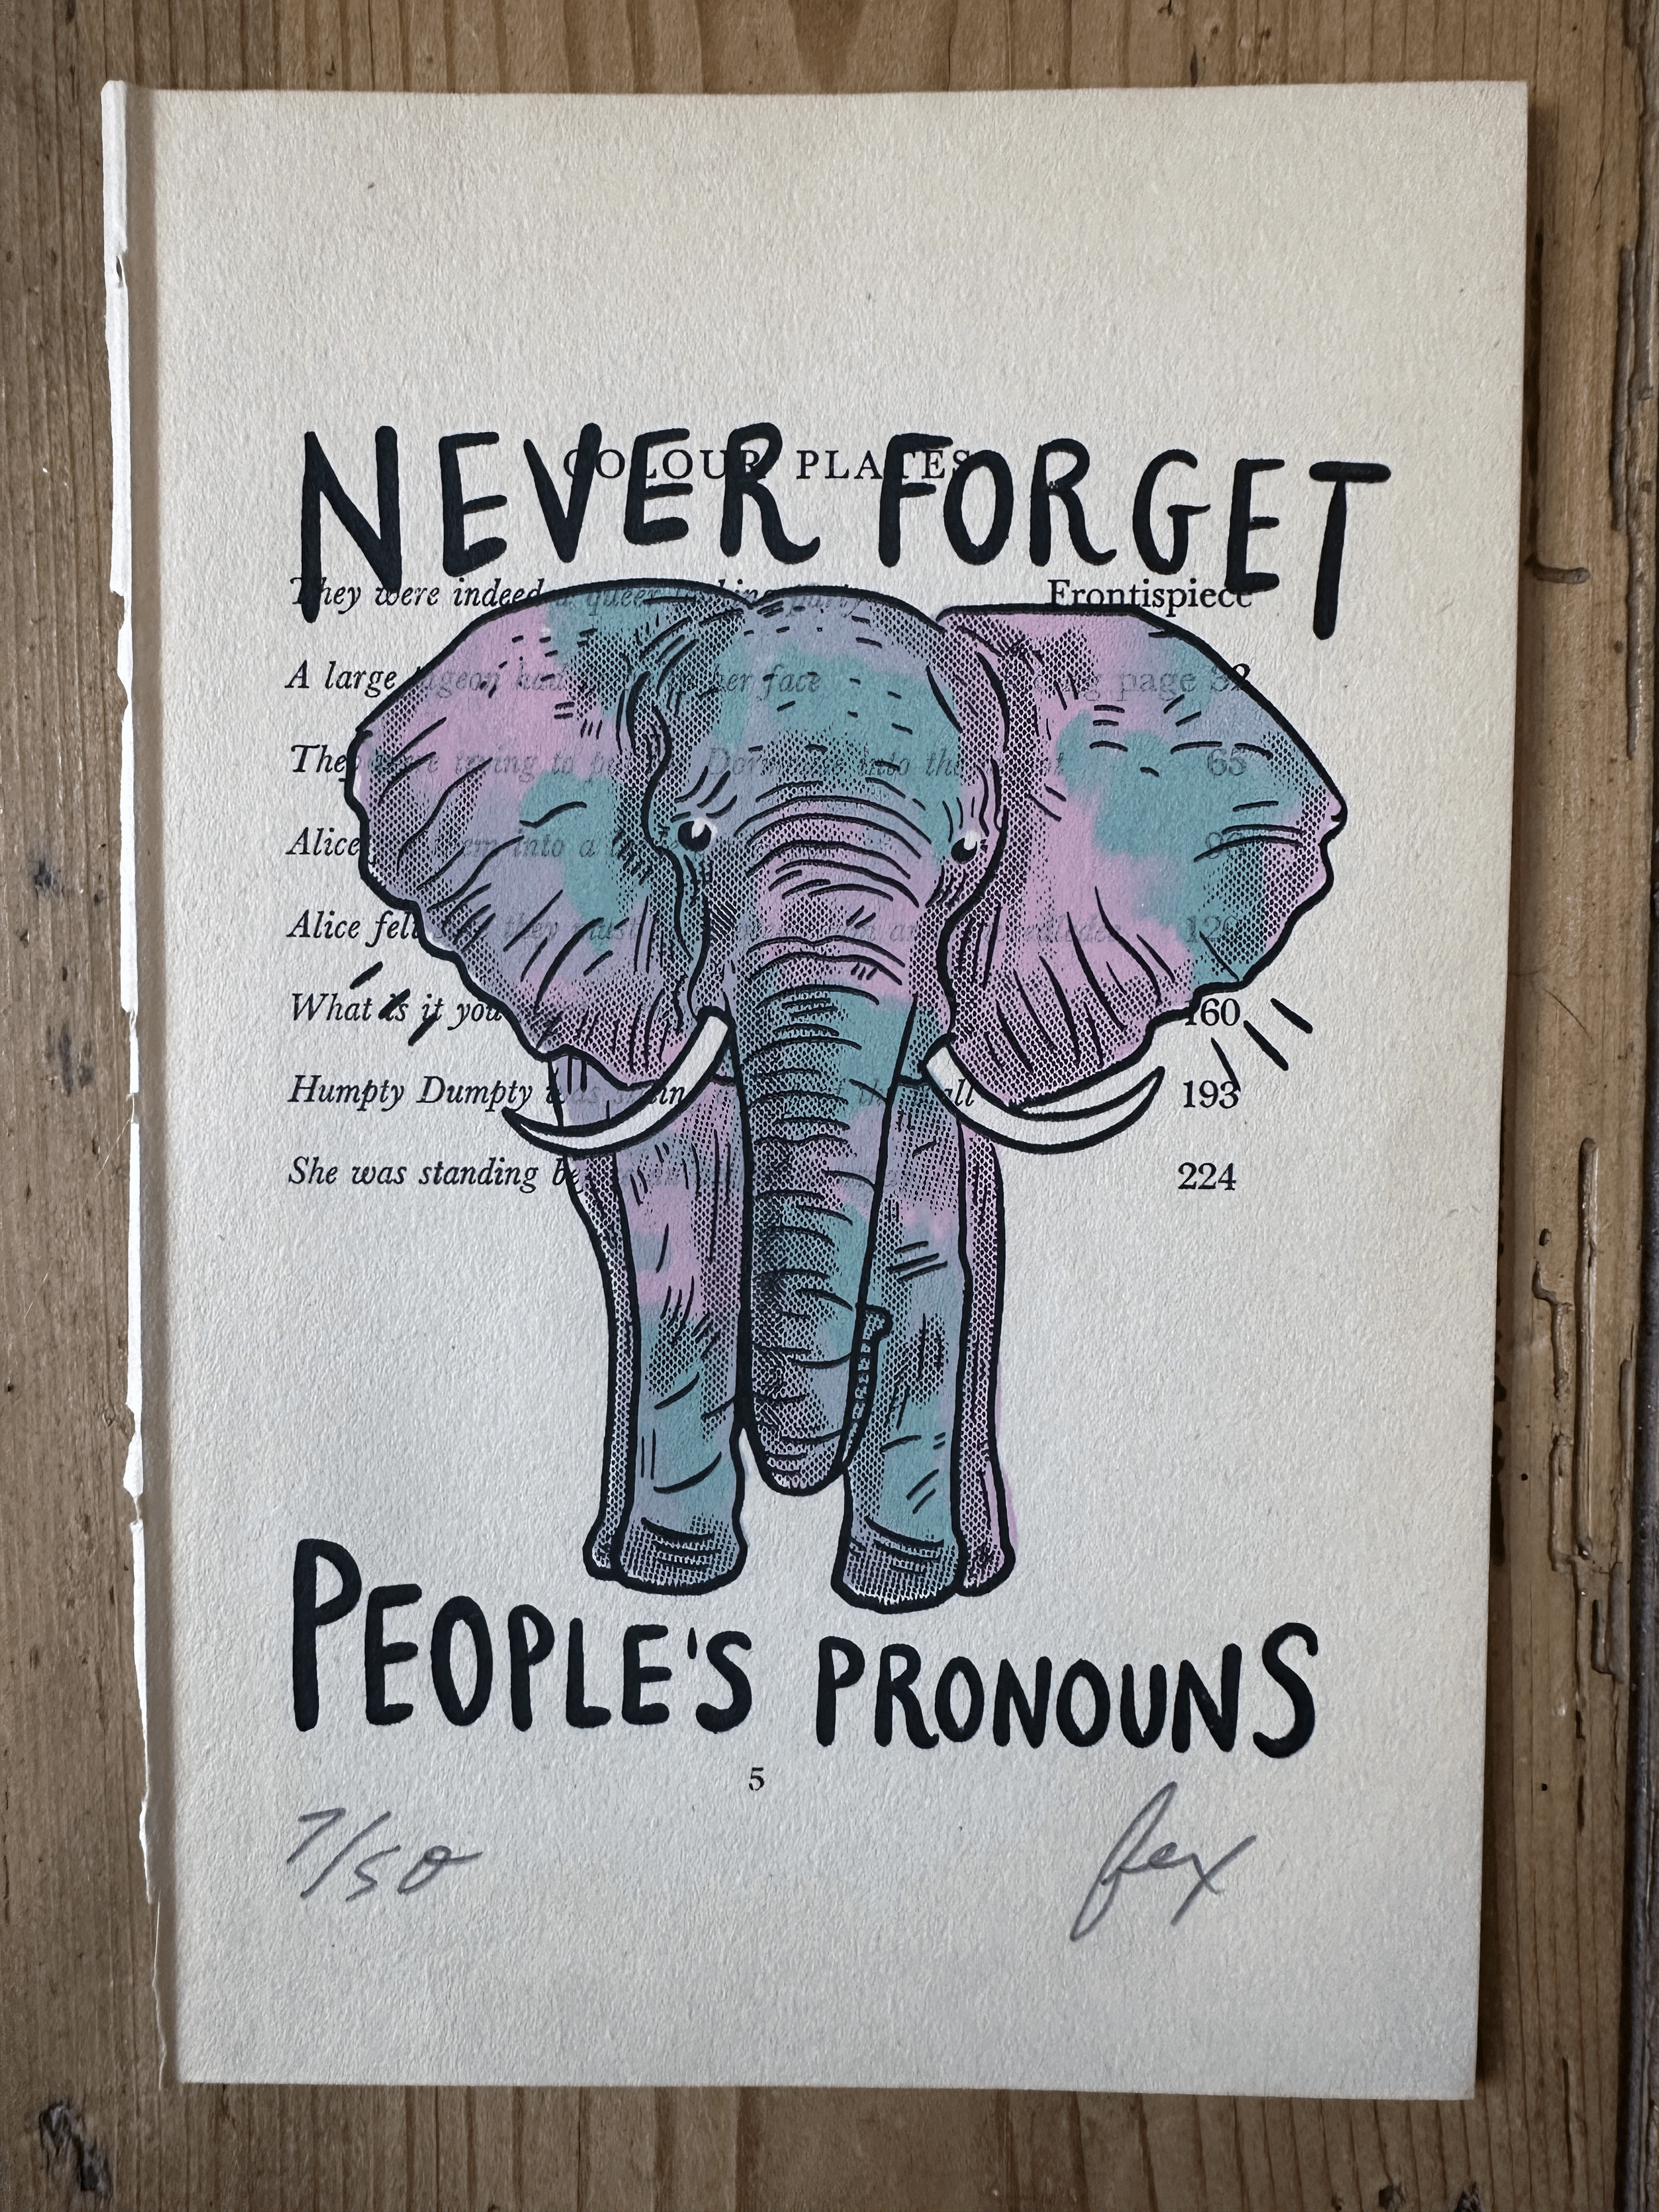 NEVER FORGET
COLOUR PLATES
They were indeed a queer looking party Frontispiece
A large pigeon had her face facing page 32
They were trying to put Dormouse into the 65
Alice them into a
Alice felt they must 129
What is it you 160
Humpty Dumpty was sitting wall 193
She was standing 224
PEOPLE'S PRONOUNS
5
7/50